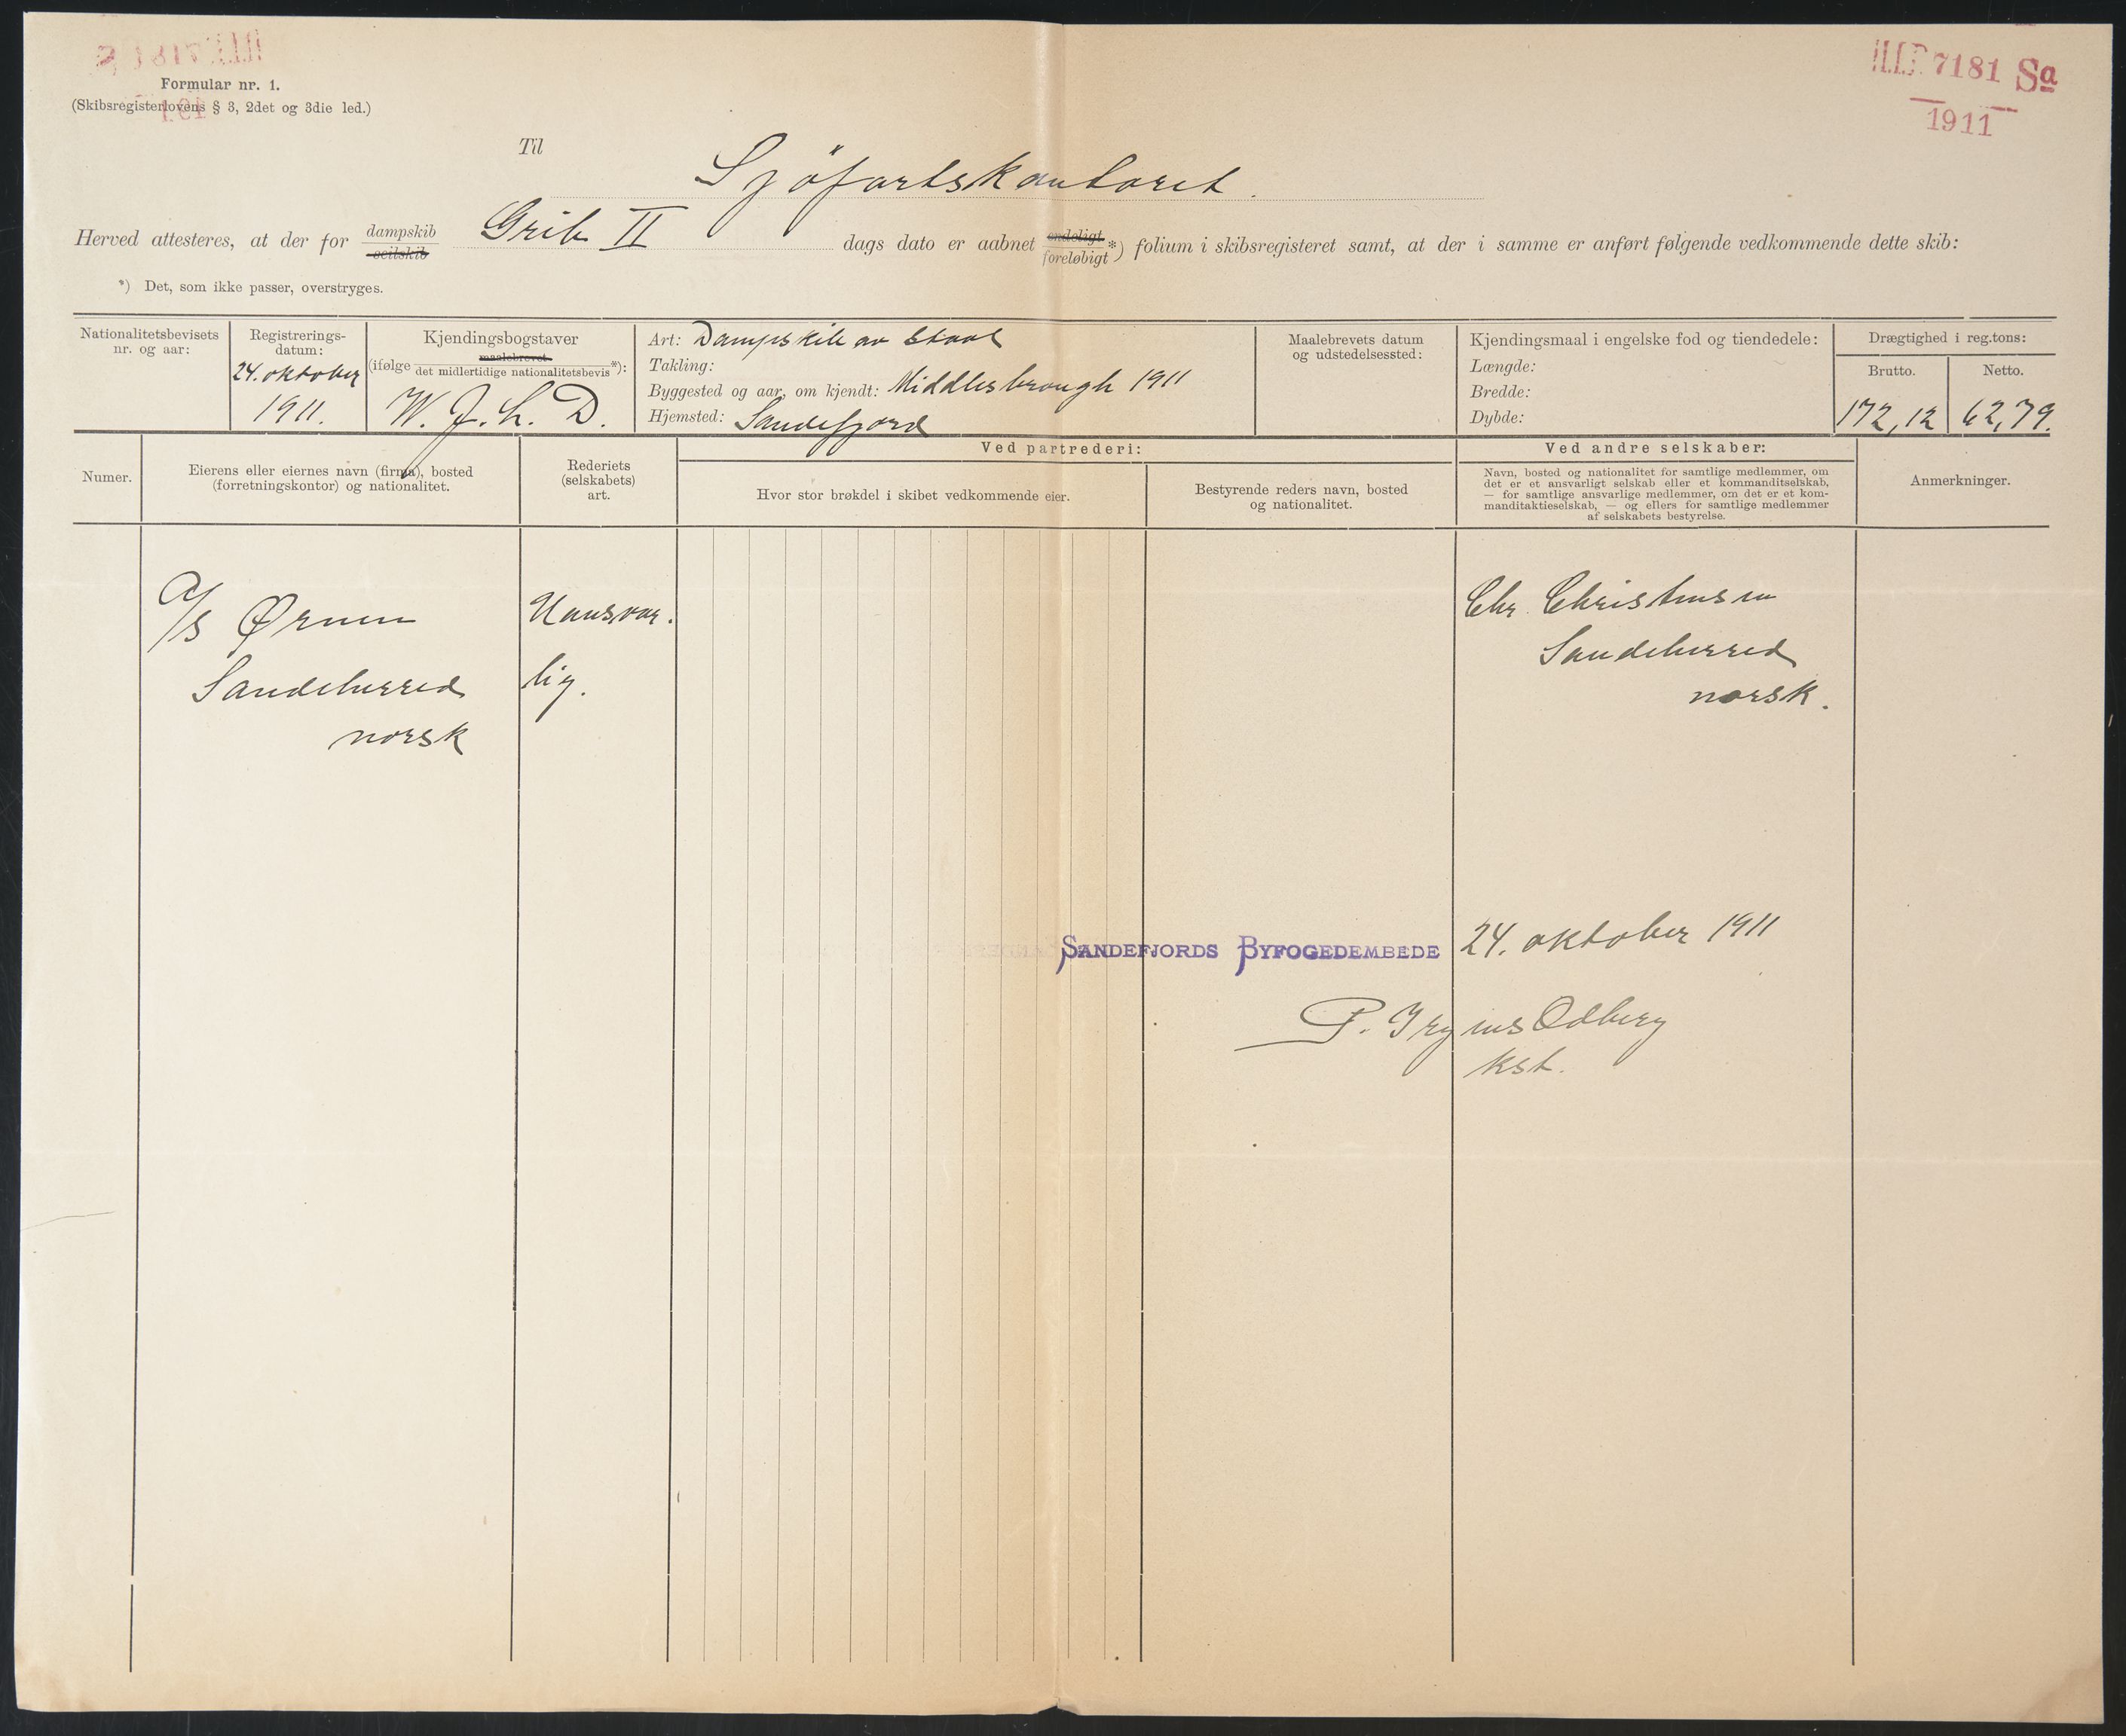 7181 Sa
1911
Formular nr. 1.
(Skibsregisterlovens § 3, 2det og 3die led.)
Til
Sjöfartskontoret.
Herved attesteres, at der for dampskib seilskib Grib II dags dato er aabnet endeligt foreløbigt *) folium i skibsregisteret samt, at der i samme er anført følgende vedkommende dette skib:
*) Det, som ikke passer, overstryges.
Nationalitetsbevisets nr. og aar:
Registrerings-datum:
24. oktober
1911.
Kjendingsbogstaver
(ifølge maalebrevet det midlertidige nationalitetsbevis *):
W. J. L. D.
Art: Dampskib av Staal
Takling:
Byggested og aar, om kjendt: Middlesbrough 1911
Hjemsted: Sandefjord
Maalebrevets datum
og udstedelsessted:
Kjendingsmaal i engelske fod og tiendedele:
Længde:
Bredde:
Dybde:
Drægtighed i reg.tons:
Brutto. Netto.
172,12 62,79.
Numer.
Eierens eller eiernes navn (firma), bosted
(forretningskontor) og nationalitet.
Rederiets
(selskabets)
art.
Ved partrederi:
Hvor stor brøkdel i skibet vedkommende eier.
Bestyrende reders navn, bosted
og nationalitet.
Ved andre selskaber:
Navn, bosted og nationalitet for samtlige medlemmer, om
det er et ansvarligt selskab eller et kommanditselskab,
— for samtlige ansvarlige medlemmer, om det er et kom-
manditaktieselskab, — og ellers for samtlige medlemmer
af selskabets bestyrelse.
Anmerkninger.
A/S Ørnen
Sandeherred
norsk
Uansvar.
lig.
Chr. Christensen
Sandeherred
norsk.
SANDEFJORDS BYFOGEDEMBEDE 24. oktober 1911
P. Odberg
kst.